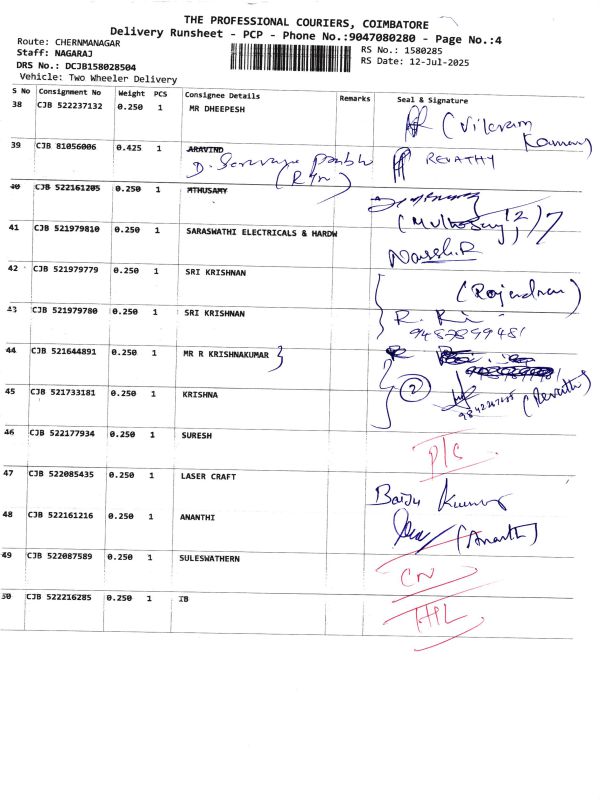 THE PROFESSIONAL COURIERS, COIMBATORE
Delivery Runsheet - PCP - Phone No.:9047080280 - Page No.:4
Route: CHERNMANAGAR
Staff: NAGARAJ
DRS No.: DCJB158028504
Vehicle: Two Wheeler Delivery
RS No.: 1580285
RS Date: 12-Jul-2025
S No Consignment No Weight PCS Consignee Details Remarks Seal & Signature
38 CJB 522237132 0.250 1 MR DHEEPESH
(Vikram Kumar)
39 CJB 81056006 0.425 1 ARAVIND
REVATHY
40 CJB 522161205 0.250 1 MTHUSAMY
41 CJB 521979810 0.250 1 SARASWATHI ELECTRICALS & HARDW
42 CJB 521979779 0.250 1 SRI KRISHNAN
(Rajendran)
43 CJB 521979780 0.250 1 SRI KRISHNAN
9487899481
44 CJB 521644891 0.250 1 MR R KRISHNAKUMAR
2
45 CJB 521733181 0.250 1 KRISHNA
(Revathy)
46 CJB 522177934 0.250 1 SURESH
P/C
47 CJB 522085435 0.250 1 LASER CRAFT
Baiju Kumar
48 CJB 522161216 0.250 1 ANANTHI
(Ananthi)
49 CJB 522087589 0.250 1 SULESWATHERN
CN
50 CJB 522216285 0.250 1 IB